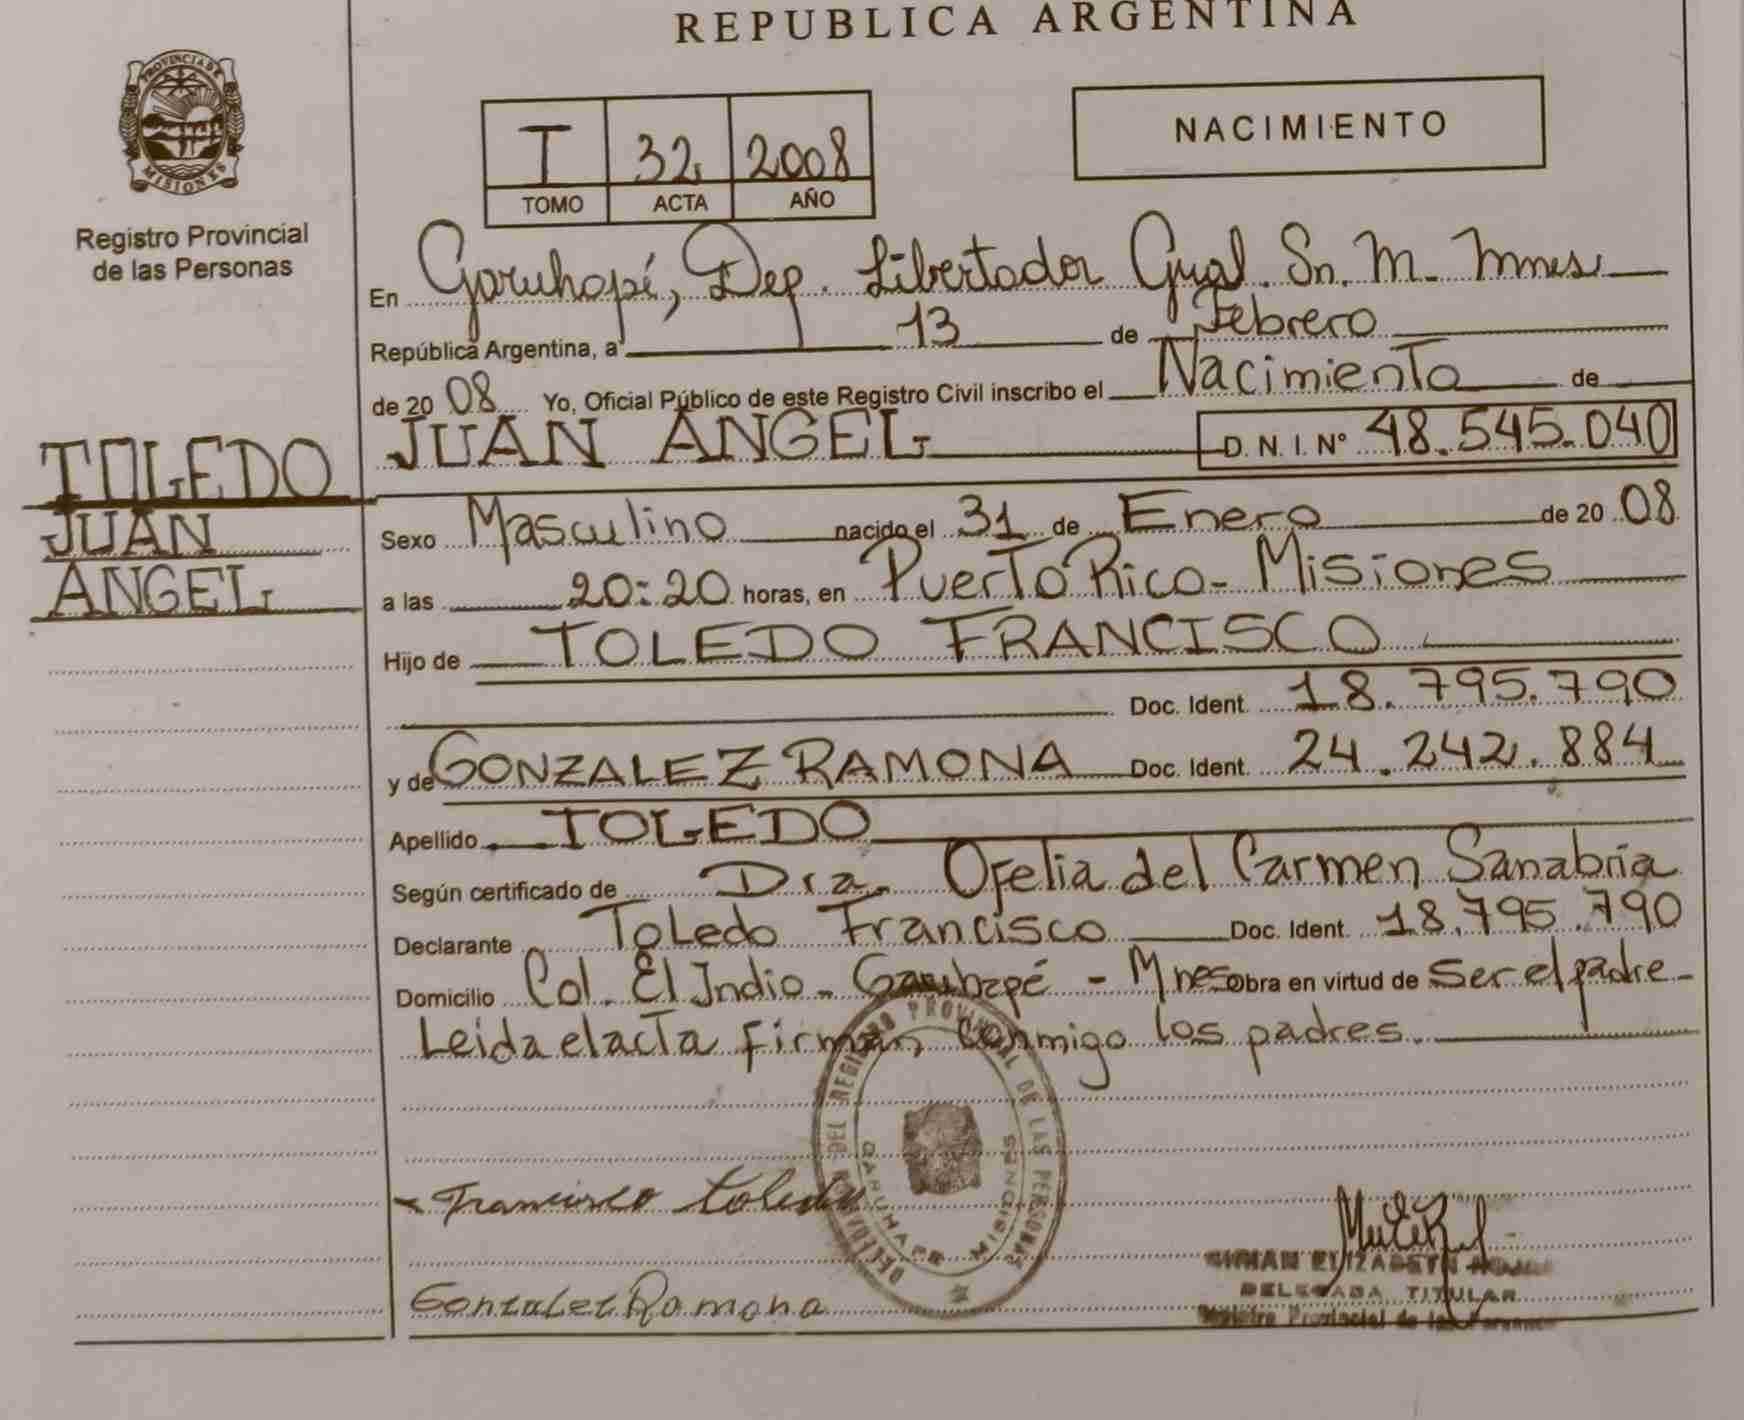 REPUBLICA ARGENTINA
PROVINCIA DE
MISIONES
Registro Provincial
de las Personas
I 32 2008
TOMO ACTA AÑO
NACIMIENTO
En Garuhapé, Dep. Libertador Gral. Sn. M. Mnes
República Argentina, a 13 de Febrero
de 20 08 Yo, Oficial Público de este Registro Civil inscribo el Nacimiento de
JUAN ANGEL D. N. I. Nº 48.545.040
TOLEDO
JUAN
ANGEL
Sexo Masculino nacido el 31 de Enero de 20 08
a las 20:20 horas, en Puerto Rico - Misiones
Hijo de TOLEDO FRANCISCO
Doc. Ident. 18.795.790
y de GONZALEZ RAMONA Doc. Ident. 24.242.884
Apellido TOLEDO
Según certificado de Dra. Ofelia del Carmen Sanabria
Declarante Toledo Francisco Doc. Ident. 18.795.790
Domicilio Col. El Indio - Garuhapé - Mnes obra en virtud de Ser el padre -
Leida el acta firman conmigo los padres.
DELEGACION DEL REGISTRO PROVINCIAL DE LAS PERSONAS
GARUHAPE MISIONES
Francisco Toledo
Gonzalez Ramona
ELIZABETH
DELEGADA TITULAR
Registro Provincial de las Personas